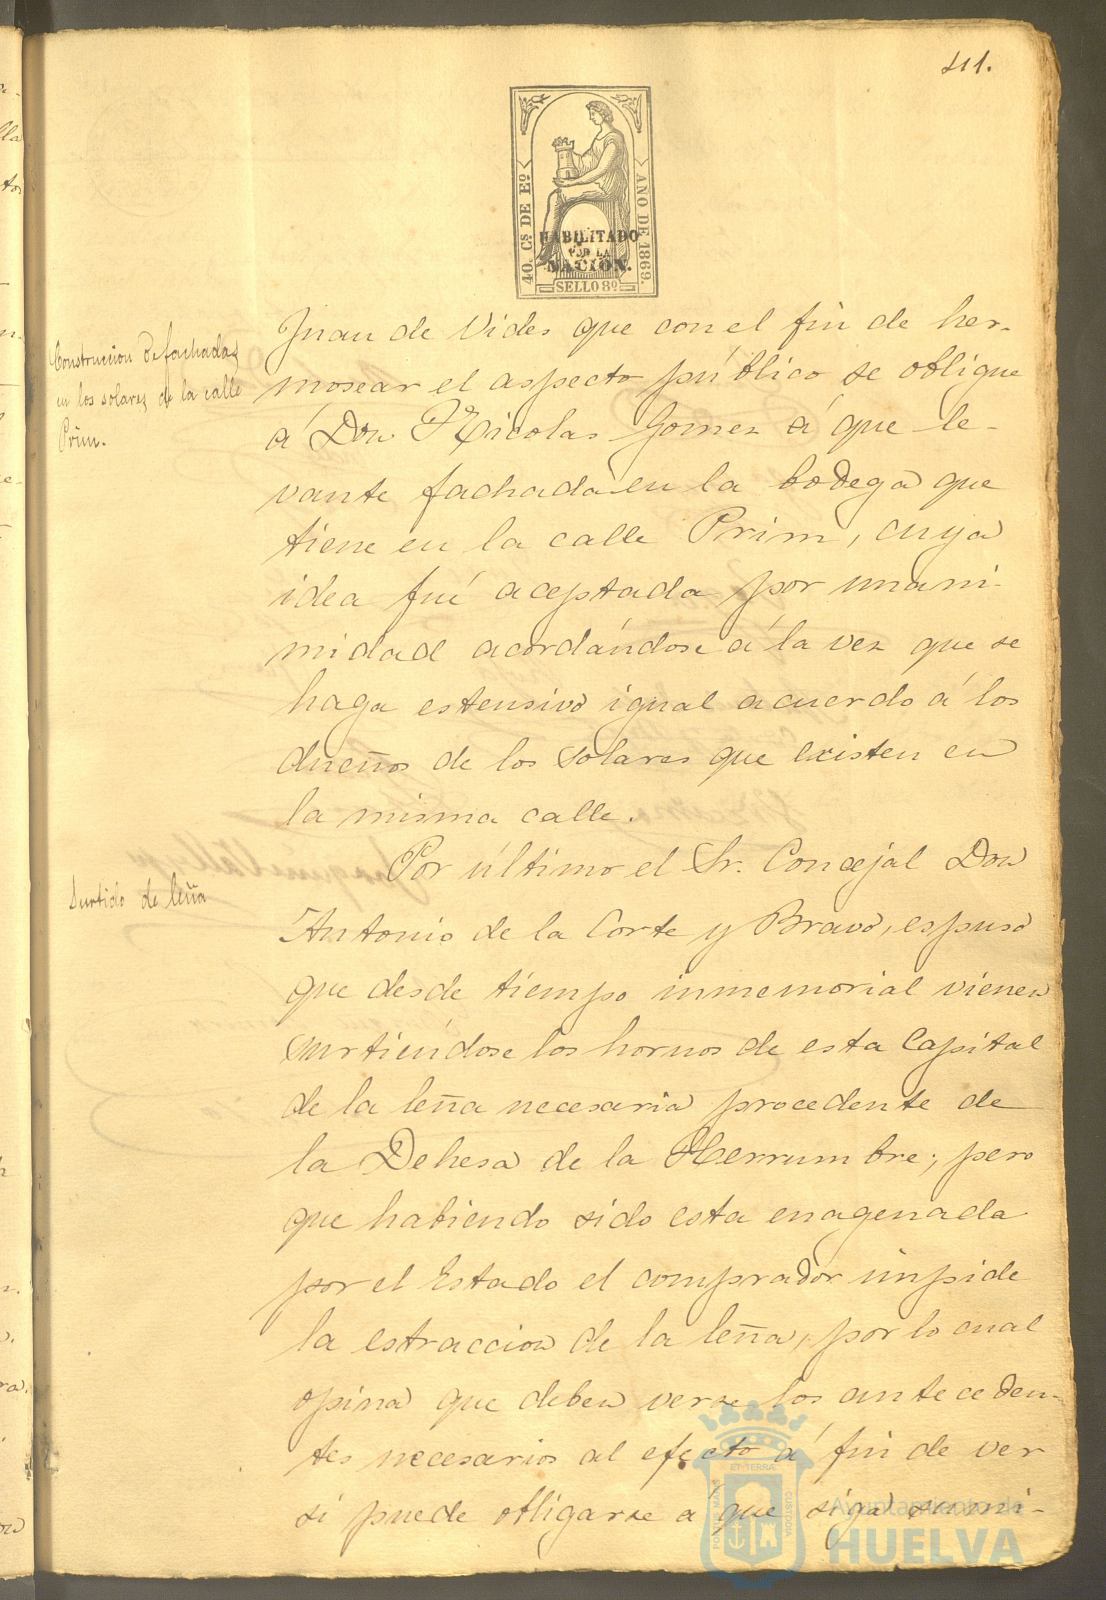 411.
40. Cs DE Eo
AÑO DE 1869.
HABILITADO
POR LA
NACION.
SELLO 8o
Construccion de fachadas
en los solares de la calle
Prim.
Juan de Vides que con el fin de her-
mosear el aspecto público se obligue
á Don Nicolas Gomez á que le-
vante fachada en la bodega que
tiene en la calle Prim, cuya
idea fué aceptada por unani-
midad acordándose á la vez que se
haga estensivo igual acuerdo á los
dueños de los solares que existen en
la misma calle.
Surtido de leña
Por último el Sr. Concejal Don
Antonio de la Corte y Bravo, espuso
que desde tiempo inmemorial vienen
surtiéndose los hornos de esta Capital
de la leña necesaria procedente de
la Dehesa de la Alcerrumbre; pero
que habiendo sido esta enagenada
por el Estado el comprador impide
la estraccion de la leña, por lo cual
opina que deben verse los anteceden-
tes necesarios al efecto á fin de ver
si puede obligarse á que siga sumi-
PORTUS MARIS
ET TERRÆ
CUSTODIA
Ayuntamiento de
HUELVA